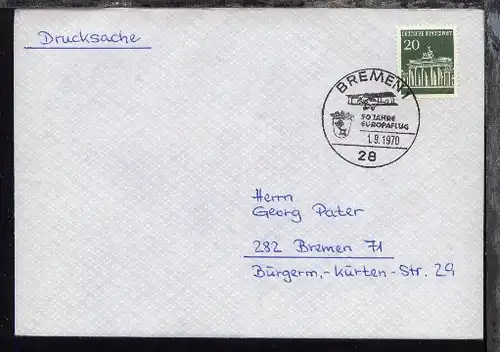 Drucksache
DEUTSCHE BUNDESPOST
20
BREMEN 1
50 JAHRE
EUROPAFLUG
1.9.1970
28
Herrn
Georg Pater
282 Bremen 71
Bürgerm.-Kürten-Str. 29